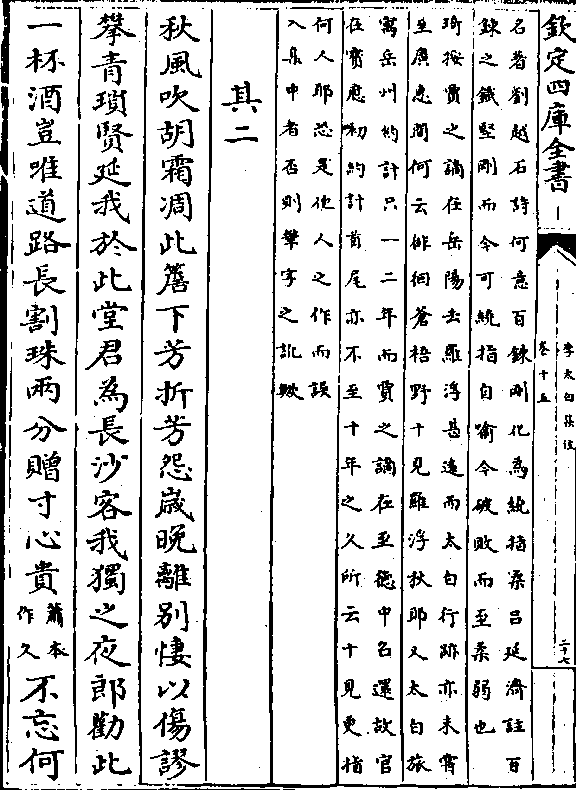 欽定四庫全書
李太白集注
卷十五
二十七
名著劉越石詩何意百鍊剛化為繞指柔呂延濟註百
鍊之鐵堅剛而今可繞指自喻今破敗而至柔弱也
琦按賈之謫在岳陽去羅浮甚遠而太白行跡亦未嘗
至廣惠間何云徘徊蒼梧野十見羅浮秋耶又太白旅
寓岳州約計只一二年而賈之謫在至德中召還故官
在寶應初約計首尾亦不至十年之久所云十見更指
何人耶恐是他人之作而誤
入集中者否則筆字之訛歟
其二
秋風吹胡霜凋此簷下芳折芳怨歲晚離別悽以傷謬
攀青瑣賢延我於此堂君為長沙客我獨之夜郎勸此
一杯酒豈唯道路長割珠兩分贈寸心貴蕭本作久不忘何